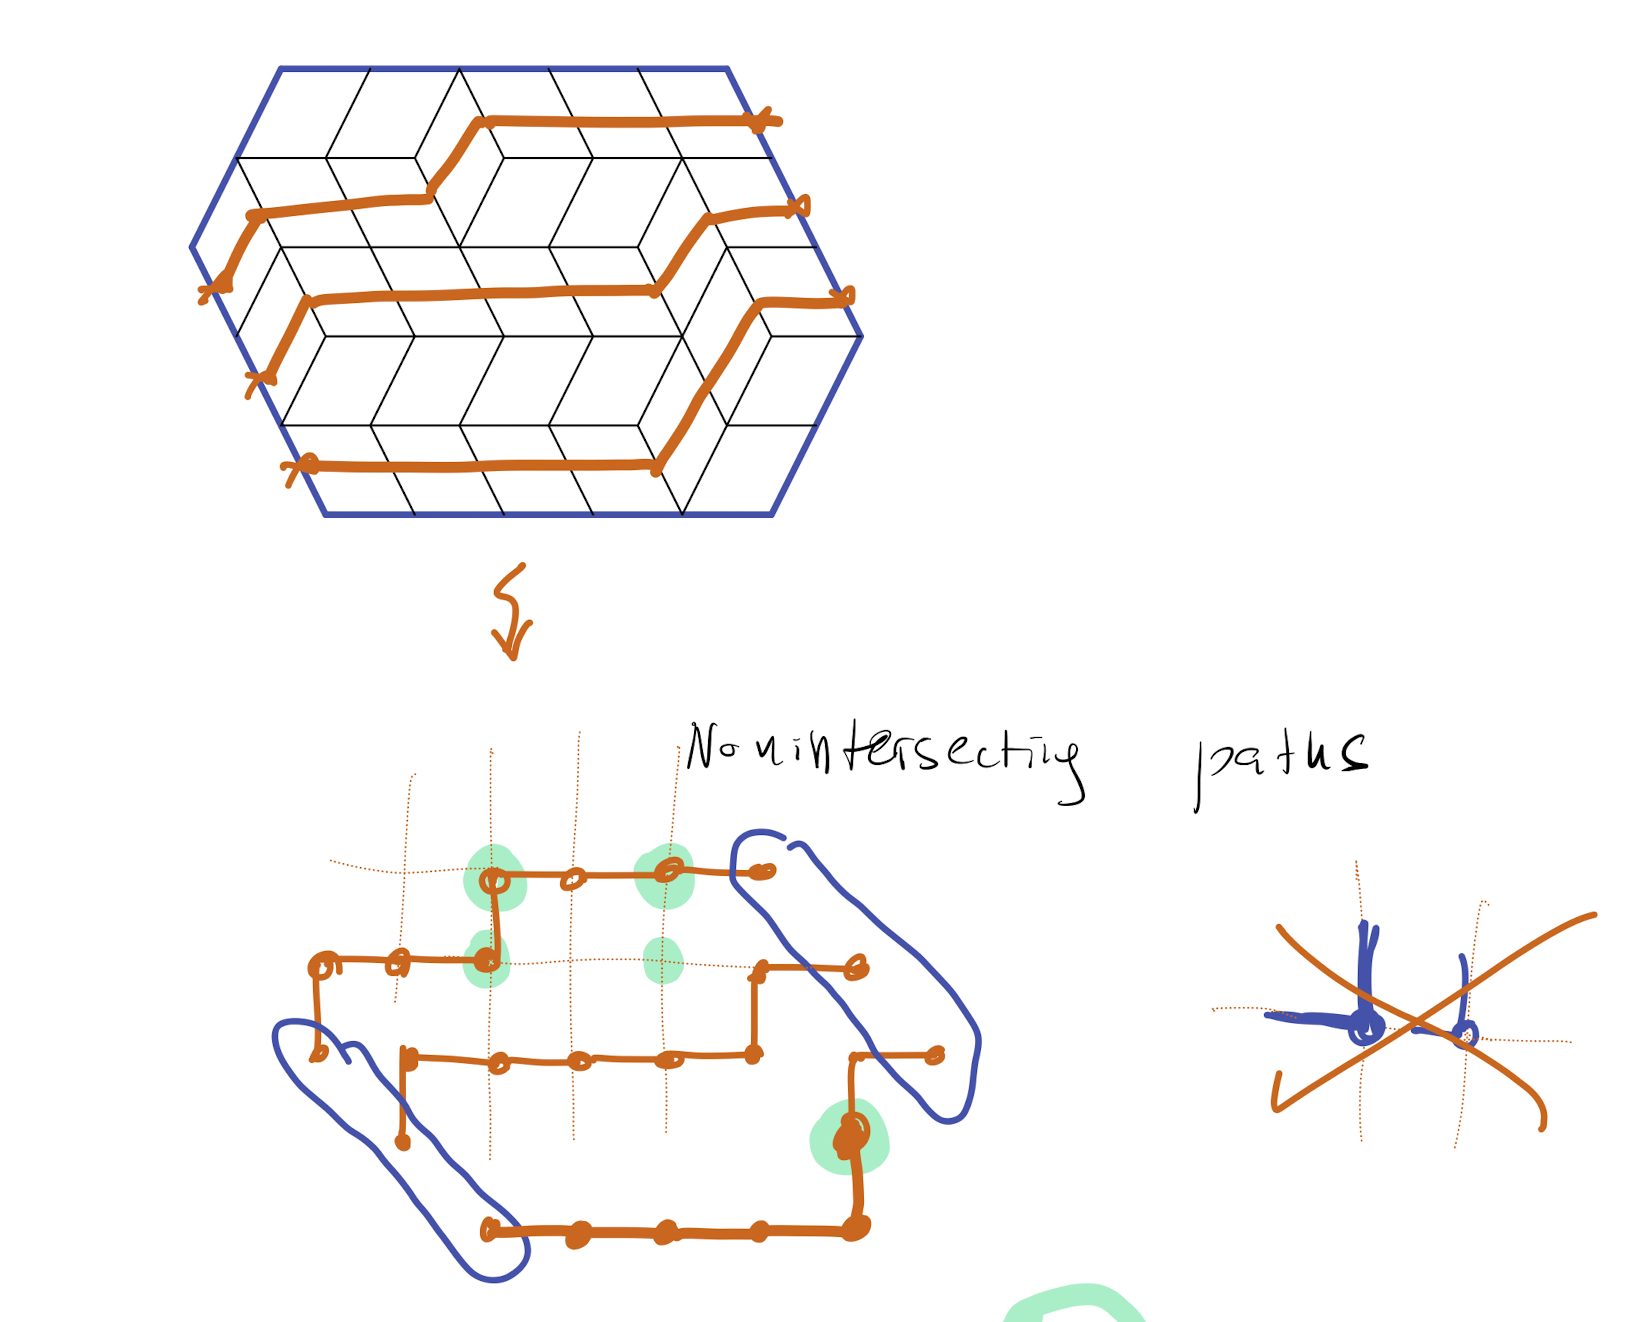 Nonintersecting paths